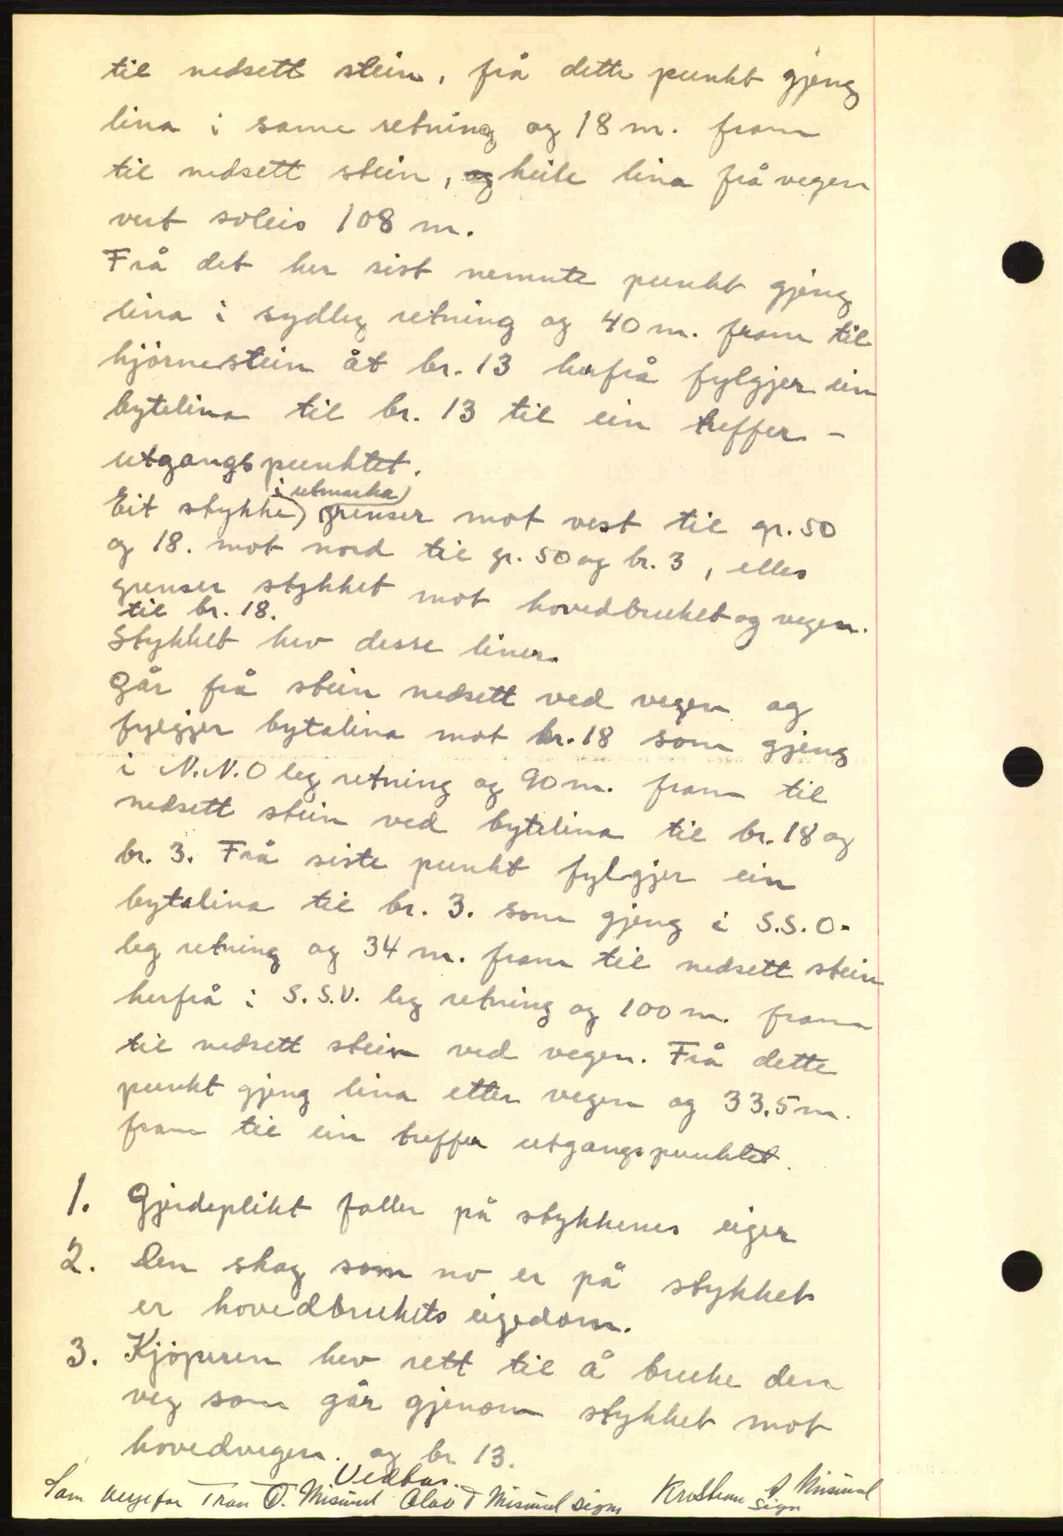 til nedsett stein, frå dette punkt gjeng
lina i same retning og 18 m. fram
til nedsett stein, og heile lina frå vegen
vert soleis 108 m.
Frå det her sist nemnte punkt gjeng
lina i sydleg retning og 40 m. fram til
hjörnestein åt br. 13 herfrå fylgjer ein
bytelina til br. 13 til ein treffer -
utgangspunktet.
i utmarka)
Eit stykke) grenser mot vest til gr. 50
og 18. mot nord til gr. 50 og br. 3, elles
grenser stykket mot hovedbruket og vegen.
til br. 18.
Stykket hev desse liner.
Går frå stein nedsett ved vegen og
fylgjer bytalina mot br. 18 som gjeng
i N.N.O leg retning og 90 m. fram til
nedsett stein ved bytelina til br. 18 og
br. 3. Frå siste punkt fylgjer ein
bytalina til br. 3. som gjeng i S.S.O.
leg retning og 34 m. fram til nedsett stein
herfrå i S.S.V. leg retning og 100 m. fram
til nedsett stein ved vegen. Frå dette
punkt gjeng lina etter vegen og 33,5 m.
fram til ein treffer utgangspunktet.
1. Gjerdeplikt faller på stykkenes eiger
2. Den skog som no er på stykket
er hovedbrukets eigedom.
3. Kjöperen hev rett til å bruke den
veg som går gjenom stykket mot
hovedvegen. og br. 13.
Vedbus.
Som verje for Tran O. Misund Olav T Misund sign Kristian A Misund
sign